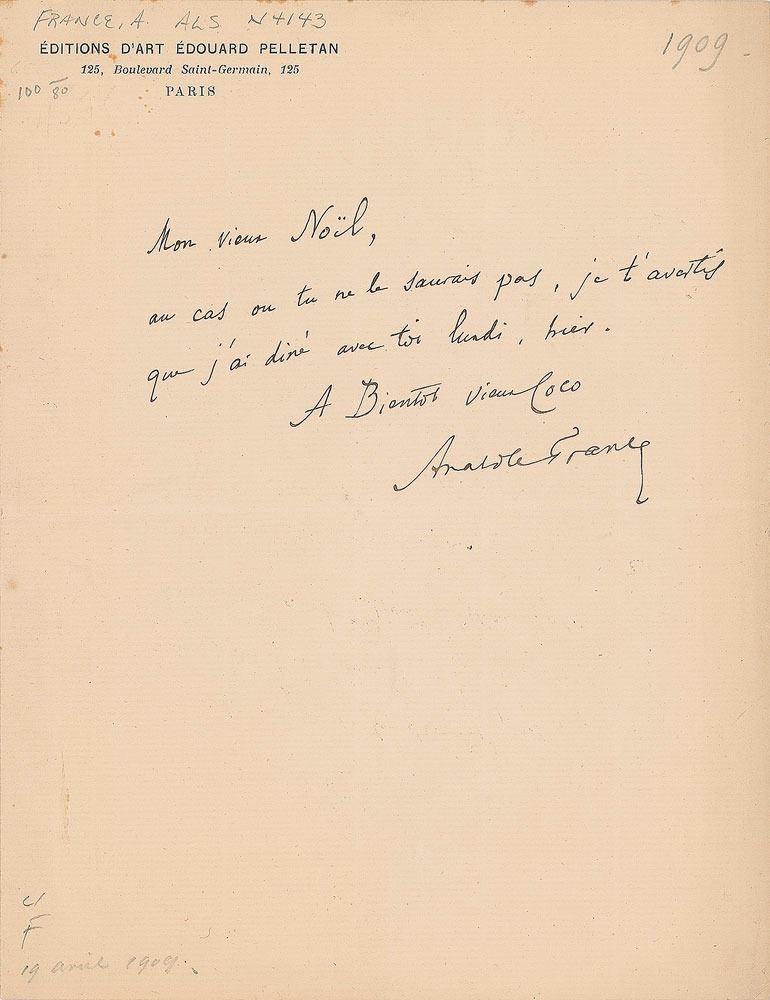 FRANCE, A. ALS N4143
ÉDITIONS D'ART ÉDOUARD PELLETAN
125, Boulevard Saint-Germain, 125
PARIS
1909
Mon vieux Noël,
au cas ou tu ne le saurais pas, je t'avertis
que j'ai diné avec toi lundi, hier.
A Bientôt vieux Coco
Anatole France
F
19 avril 1909.